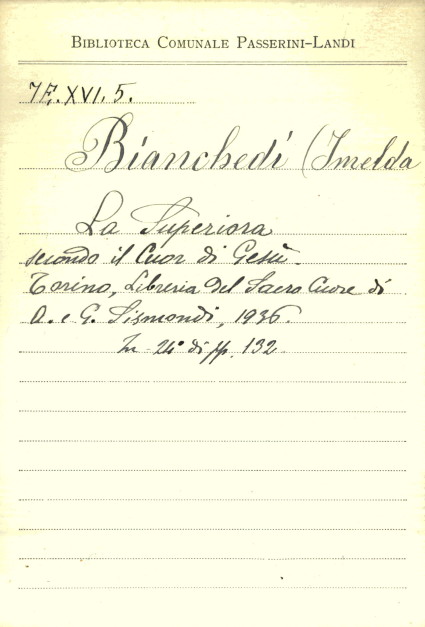 BIBLIOTECA COMUNALE PASSERINI-LANDI
7F.XVI.5.
Bianchedi (Imelda
La Superiora
secondo il Cuor di Gesù.
Torino, Libreria del Sacro Cuore di
A. e G. Sismondi, 1936.
In-24° di pp. 132